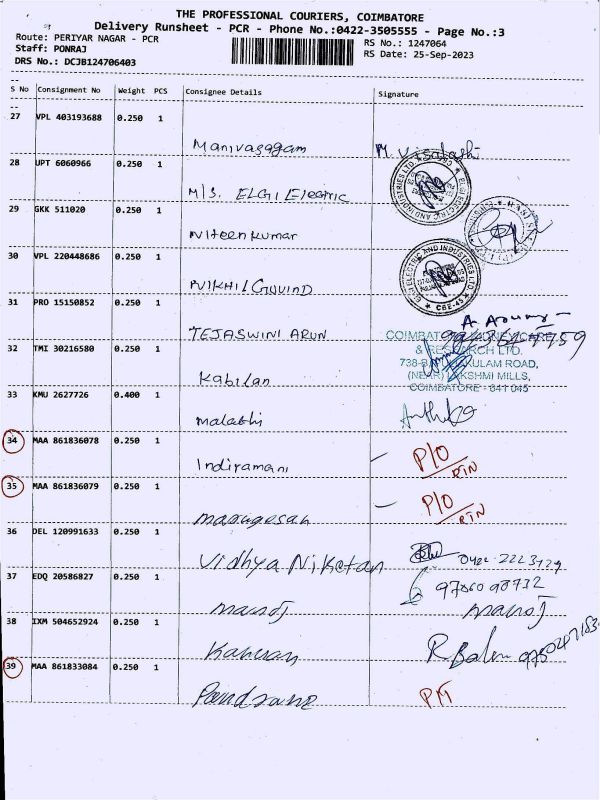 THE PROFESSIONAL COURIERS, COIMBATORE
Delivery Runsheet - PCR - Phone No.:0422-3505555 - Page No.:3
Route: PERIYAR NAGAR - PCR
RS No.: 1247064
Staff: PONRAJ
RS Date: 25-Sep-2023
DRS No.: DCJB124706403
S No Consignment No Weight PCS Consignee Details Signature
27 VPL 403193688 0.250 1
Manivasagam M. Visalashi
28 UPT 6060966 0.250 1
M/S. ELGI Electric
ELGI ELECTRIC AND INDUSTRIES LTD
29 GKK 511020 0.250 1
Niteen kumar
30 VPL 220448686 0.250 1
NIKHIL GOVIND
ELGI ELECTRIC AND INDUSTRIES LTD
CBE-45
31 PRO 15150852 0.250 1
TEJASWINI ARUN
32 TMI 30216580 0.250 1
Kabilan
COIMBATORE KIDNEY CARE
& RESEARCH LTD.
KULAM ROAD,
(NEAR) LAKSHMI MILLS,
COIMBATORE - 641 045
33 KMU 2627726 0.400 1
malathi
34 MAA 861836078 0.250 1
Indiramani P/O RTN
35 MAA 861836079 0.250 1
marugesan P/O RTN
36 DEL 120991633 0.250 1
Vidhya Niketan
37 EDQ 20586827 0.250 1
manoj manoj
38 IXM 504652924 0.250 1
R Balu
39 MAA 861833084 0.250 1
PM